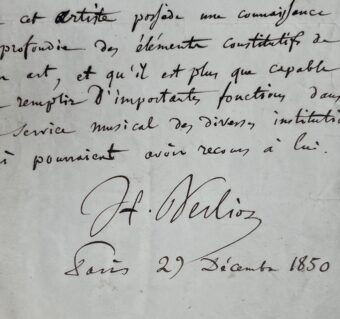 cet artiste possède une connaissance
profondie des éléments constitutifs de
n art, et qu'il est plus que capable
remplir d'importantes fonctions dans
service musical des diverses instituti
i pourraient avoir recours à lui.
H. Berlioz
Paris 29 Décembre 1850